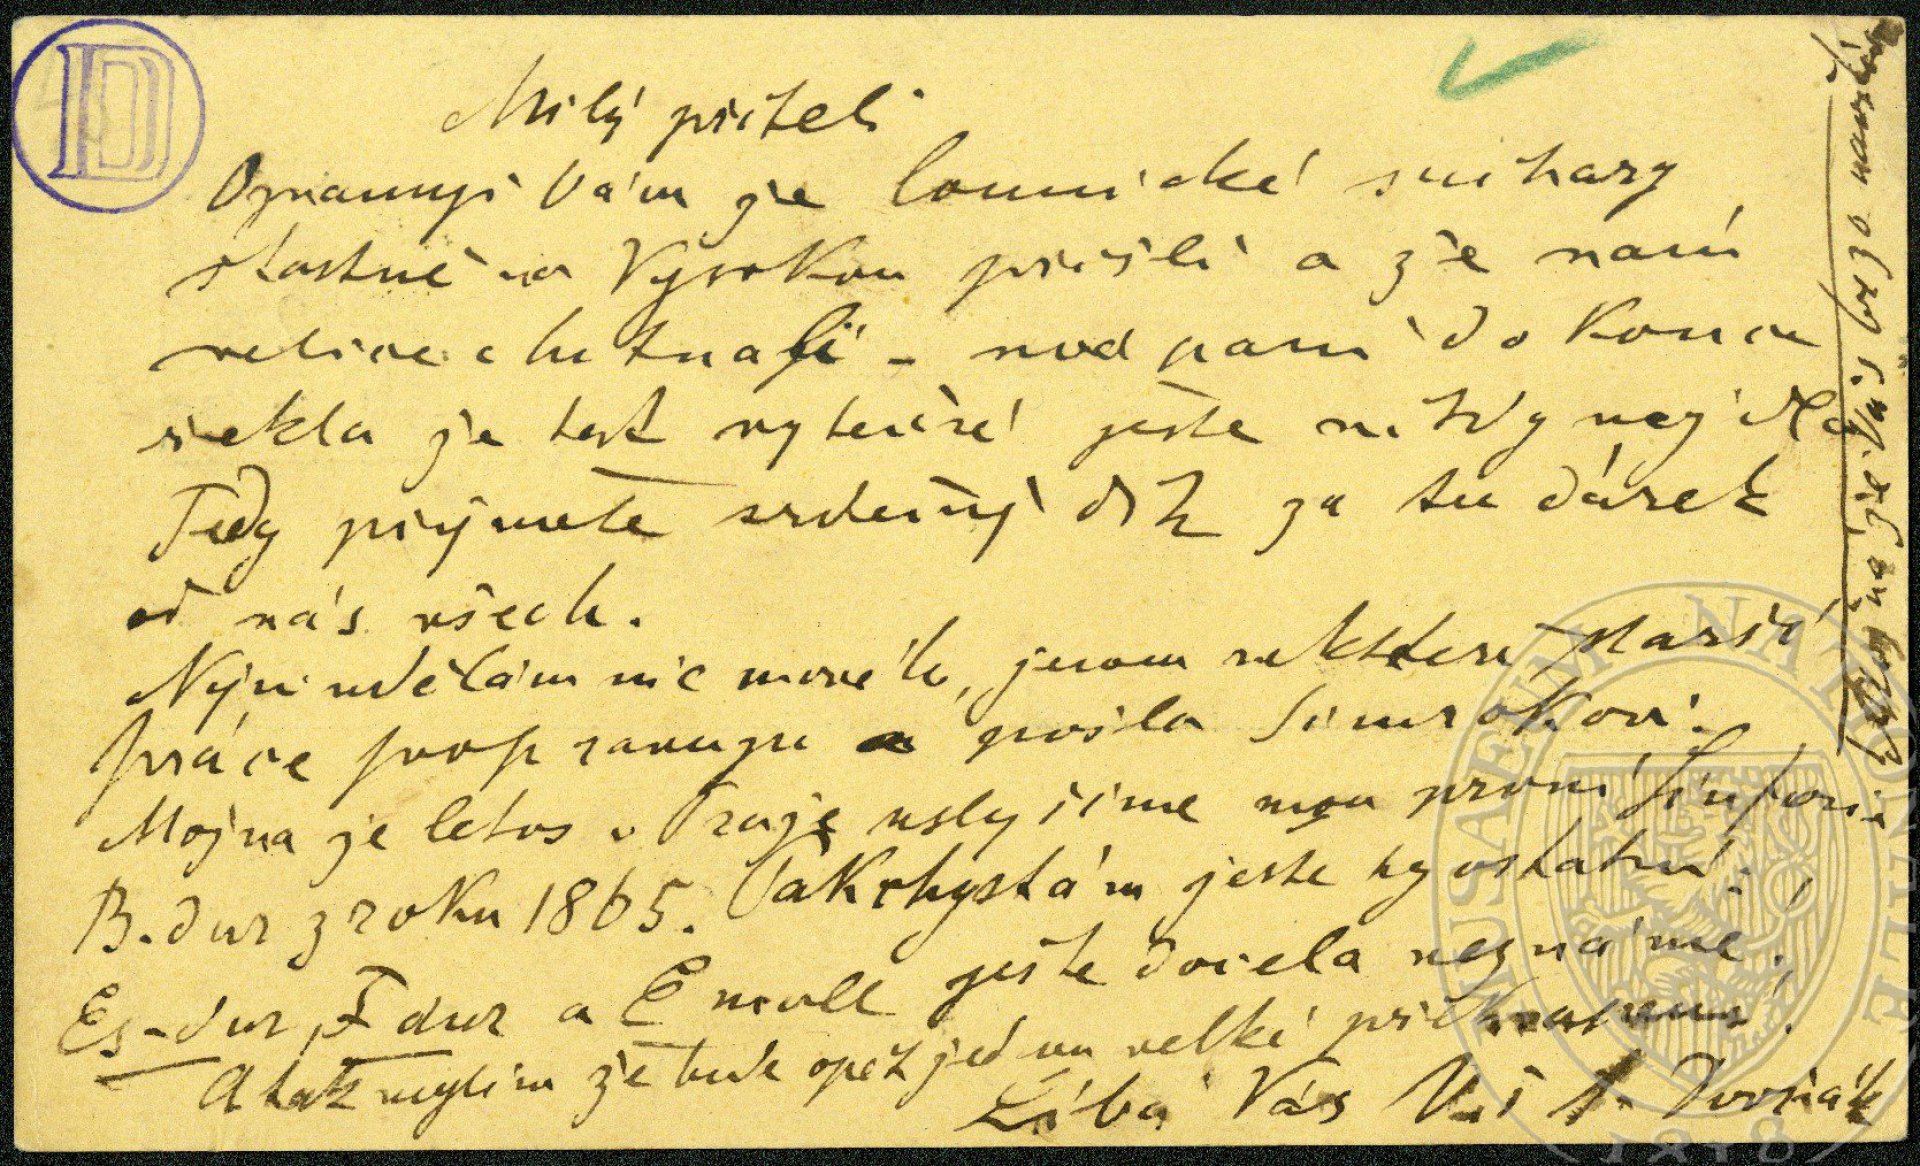 Milý příteli
Oznamuji Vám že lomnické suchary
šťastně na Vysokou přišli a že nám
velice chutnali – má paní dokonce
řekla že tak výtečné ještě nikdy nejedla
Tedy přijměte srdečný dík za tu dárek
od nás všech.
Nyní nedělám nic nového, jenom některé starší
práce přepracuju a pošlu Simrokovi.
Možná že letos v Praze uslyšíme mou první Sinfonii
B-dur z roku 1865. Pak chystám ještě ty ostatní:
Es-dur, F dur a E moll ještě docela neznámé.
A tak myslím že bude opět jednou velké překvapení.
Líbá Vás Váš A. Dvořák
že Vás brzo navštíví
D
MUSAEUM NATIONALE
1818